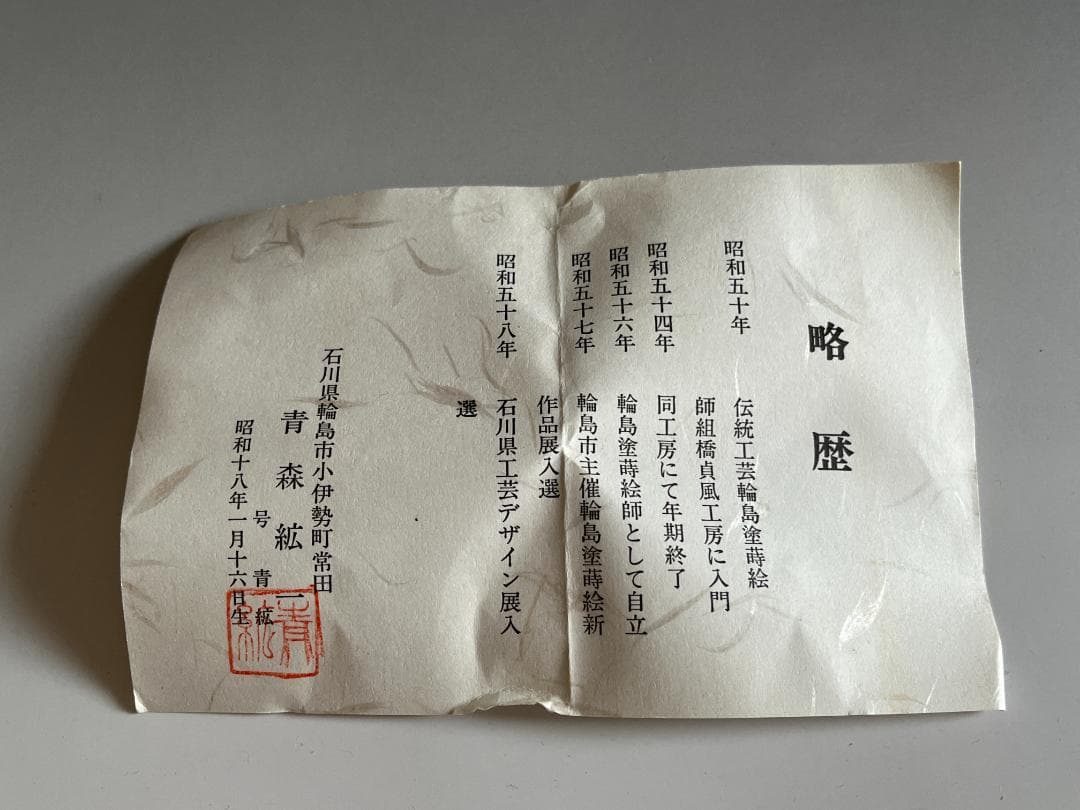 略歴
昭和五十年 伝統工芸輪島塗蒔絵
師組橋貞風工房に入門
昭和五十四年 同工房にて年期終了
昭和五十六年 輪島塗蒔絵師として自立
昭和五十七年 輪島市主催輪島塗蒔絵新
作品展入選
昭和五十八年 石川県工芸デザイン展入
選
石川県輪島市小伊勢町常田
青森紘一
号青紘
昭和十八年一月十六日生
青紘